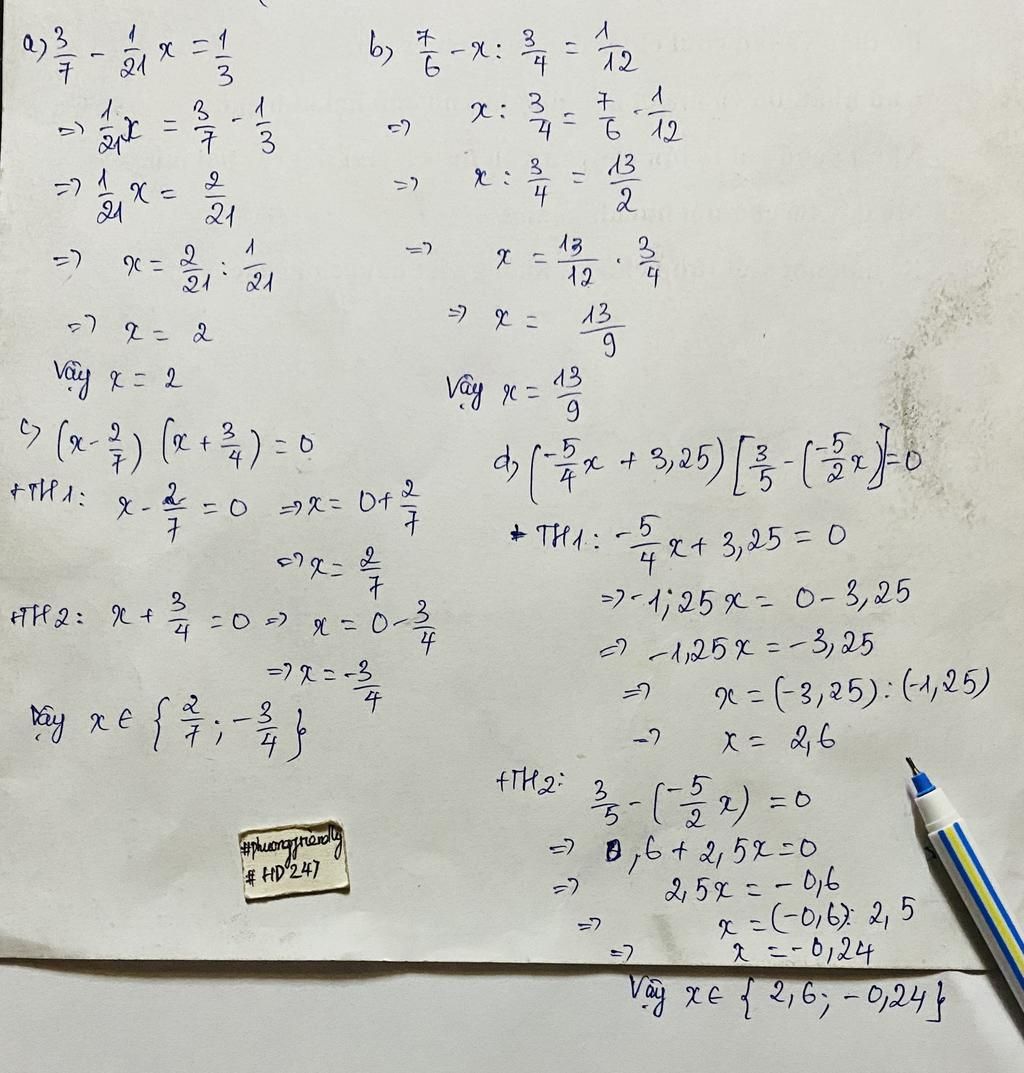 a) 3/7 - 1/21 x = 1/3
=> 1/21 x = 3/7 - 1/3
=> 1/21 x = 2/21
=> x = 2/21 : 1/21
=> x = 2
Vậy x = 2
b) 7/6 - x : 3/4 = 1/12
=> x : 3/4 = 7/6 - 1/12
=> x : 3/4 = 13/2
=> x = 13/12 . 3/4
=> x = 13/9
Vậy x = 13/9
c) (x - 2/7) (x + 3/4) = 0
+TH1: x - 2/7 = 0 => x = 0 + 2/7
=> x = 2/7
+TH2: x + 3/4 = 0 => x = 0 - 3/4
=> x = -3/4
Vậy x ∈ { 2/7 ; -3/4 }
d) (-5/4 x + 3,25) [3/5 - (-5/2 x)] = 0
+ TH1: -5/4 x + 3,25 = 0
=> -1,25x = 0 - 3,25
=> -1,25x = -3,25
=> x = (-3,25) : (-1,25)
=> x = 2,6
+TH2: 3/5 - (-5/2 x) = 0
=> 0,6 + 2,5x = 0
=> 2,5x = -0,6
=> x = (-0,6) : 2,5
=> x = -0,24
Vậy x ∈ { 2,6 ; -0,24 }
#phuongfriendly
# HD247